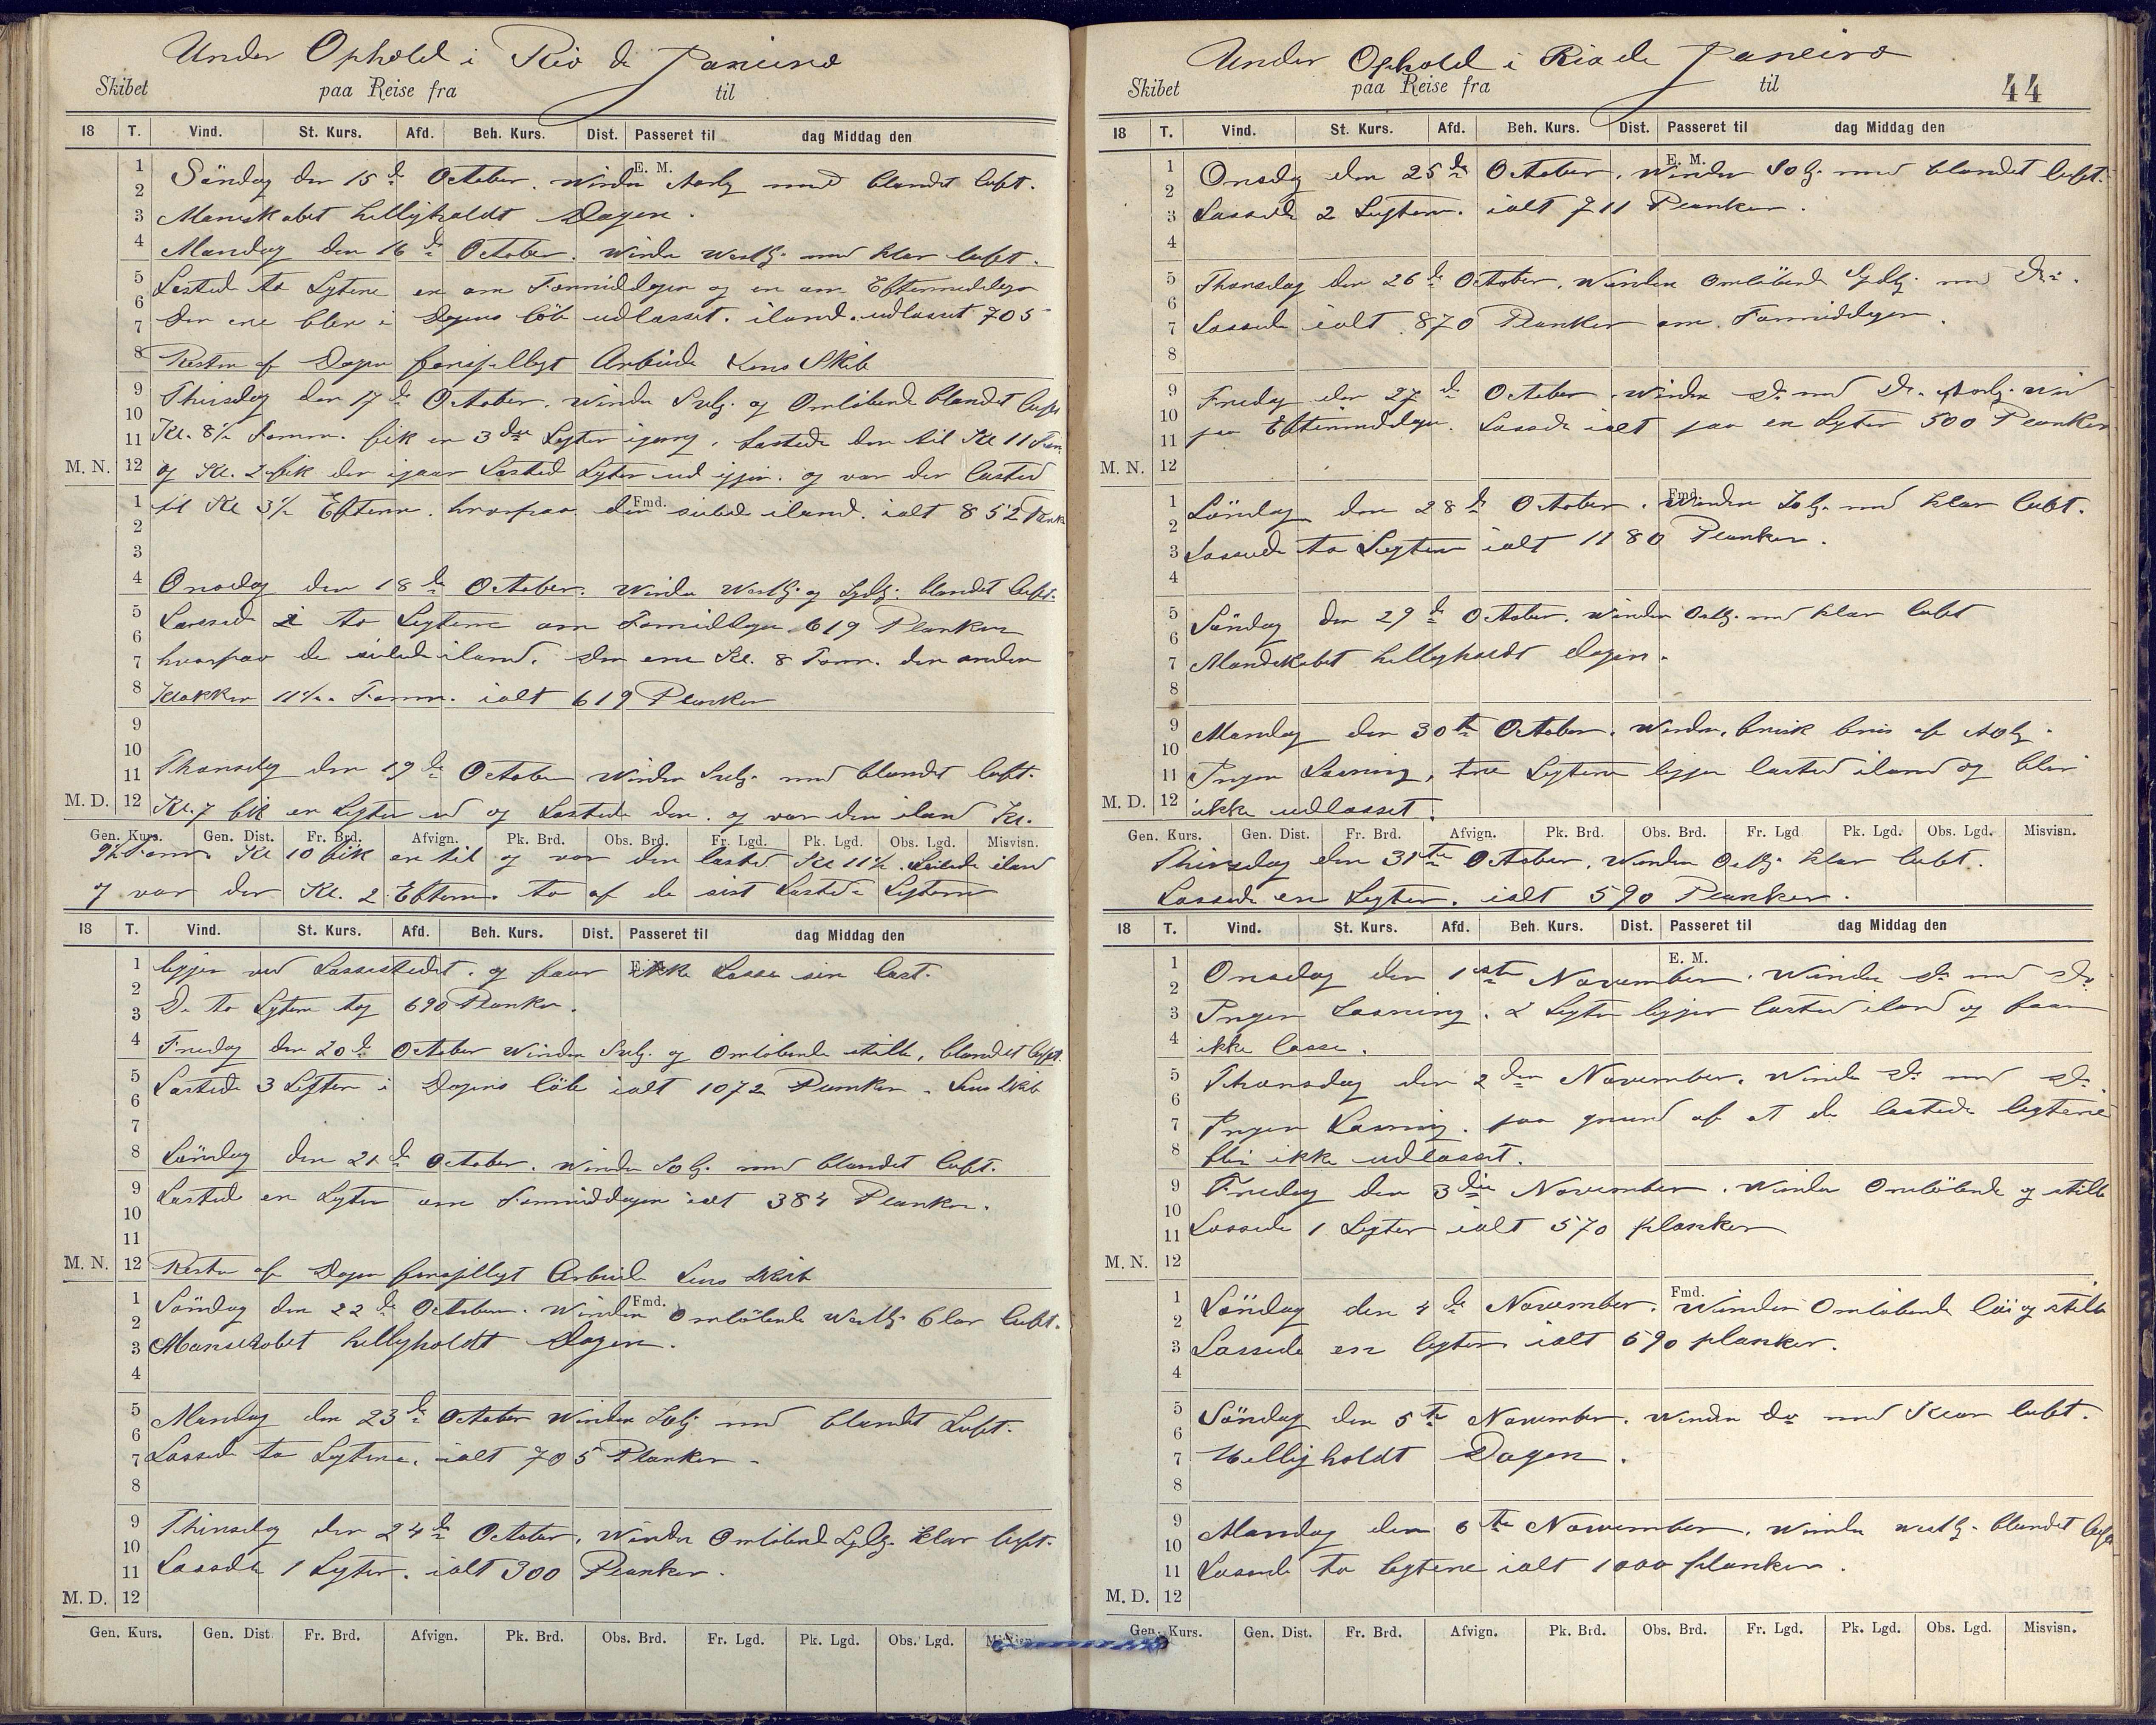 Under Ophold i Rio de Janeiro
Skibet paa Reise fra til
18 T. Vind. St. Kurs. Afd. Beh. Kurs. Dist. Passeret til dag Middag den
E. M.
Söndag den 15de October. Winden med blandet luft.
Mandskabet helligholdt Dagen.
Mandag den 16de October. Winden Westlg. med klar luft.
Lasted to Lytere en om Formiddagen og en om Eftermiddagen
Den ene blev i Dagens löb udlasset. iland. udlasset 705
Resten af Dagen forsjelligt Arbeide Lens Skib
Thirsdag den 17de October. Winden Svlg. og Omlöbende blandet luft
Kl. 8½ Form. fik en 3die Lygter igang. Lastede den til Kl 11 Form
M. N. og Kl. 2 fik den igaar Lasted Lyter ud igjen. og var den lasted
Fmd.
til Kl 3½ Efterm. hvorpaa den seilede iland. ialt 852 Plank
Onsdag den 18de October. Winden Westlg. og Sydlg. blandet luft.
Lassed i to Legtere om Formidagen 619 Planker
hvorpaa de seilede iland. den ene Kl. 8 Form. den anden
Klokken 11½. Form. ialt 619 Planker
Thorsdag den 19de October Winden Svlg. med blandet luft.
M. D. Kl. 7 fik en Legter ud og Lastede den. og var den iland Kl.
Gen. Kurs. Gen. Dist. Fr. Brd. Afvign. Pk. Brd. Obs. Brd. Fr. Lgd. Pk. Lgd. Obs. Lgd. Misvisn.
9½ Form. Kl 10 fik en til og var den lasted Kl 11½. Seilede iland
og var der Kl. 2 Efterm. to af de sist Lastede Legtere
18 T. Vind. St. Kurs. Afd. Beh. Kurs. Dist. Passeret til dag Middag den
ligger ved Lassestedet. og faar ikke Lasse sin last.
De to Lytere tog 690 Planker.
Fredag den 20de October Winden Svlg. og Omlöbende stille, blandet luft.
Lastede 3 Legtere i Dagens löb ialt 1072 Planker. Lens Skib
Löndag den 21de October. Winden Solg. med blandet luft.
Lastede en Lygter om Formiddagen ialt 384 Planker.
M. N. Resten af Dagen forsjelligt Arbeide Lens Skib
Fmd.
Söndag den 22de October. Winden Omlöbende Westlg. klar luft.
Manskabet helligholdt Dagen.
Mandag den 23de October Winden Solg. med blandet Luft.
Lassed to Legtere. ialt 705 Planker.
Thirsdag den 24de October, Winden Omlöbende Sydlg. klar luft.
Lassede 1 Lygter. ialt 300 Planker.
M. D.
Gen. Kurs. Gen. Dist. Fr. Brd. Afvign. Pk. Brd. Obs. Brd. Fr. Lgd. Pk. Lgd. Obs. Lgd. Misvisn.
Under Ophold i Rio de Janeiro
Skibet paa Reise fra til 44
18 T. Vind. St. Kurs. Afd. Beh. Kurs. Dist. Passeret til dag Middag den
E. M.
Onsdg den 25de October. Winden Solg. med blandet luft.
Lassede 2 Legtere. ialt 711 Planker.
Thorsdag den 26de October. Winden Omlöbende Sydlg. med Do.
Lassede ialt 870 Planker om Formiddagen.
Fredag den 27de October. Winden Do med Do.
paa Eftermiddagen. Lassede ialt paa en Lygter 500 Planker
M. N.
Fmd.
Löndag den 28de October. Winden Solg. med klar luft.
Lassede to Legtere ialt 1180 Planker.
Söndag den 29de October. Winden Ostlg. med klar luft
Mandskabet helligholdt Dagen.
Mandag den 30te October. Winden. frisk bris af
Ingen Lasning, tre Legtere ligger lasted iland og blir
M. D. ikke udlasset.
Gen. Kurs. Gen. Dist. Fr. Brd. Afvign. Pk. Brd. Obs. Brd. Fr. Lgd Pk. Lgd. Obs. Lgd. Misvisn.
Thirsdag den 31te October. Winden Ostlg. klar luft.
Lassede en Legter. ialt 590 Planker.
18 T. Vind. St. Kurs. Afd. Beh. Kurs. Dist. Passeret til dag Middag den
E. M.
Onsdag den 1ste November. Winden Do med Do
Ingen Lasning. 2 Legter ligger lasted iland og faar
ikke lasse.
Thorsdag den 2den November. Winde Do med Do.
Ingen Lasning. paa grund af at de lastede legtere
blir ikke udlasset.
Fredag den 3die November. Winden Omlöbende og stille
Lassede 1 Legter ialt 570 planker
M. N.
Fmd.
Löndag den 4de November. Winden Omlöbende löi og stille
Lassede en legter ialt 590 planker.
Söndag den 5te November. Winden do med Klar luft.
Helligholdt Dagen.
Mandag den 6te November. Winden westlg. blandet luft
Lassede to legtere ialt 1000 planker.
M. D.
Gen. Kurs. Gen. Dist. Fr. Brd. Afvign. Pk. Brd. Obs. Brd. Fr. Lgd. Pk. Lgd. Obs. Lgd. Misvisn.